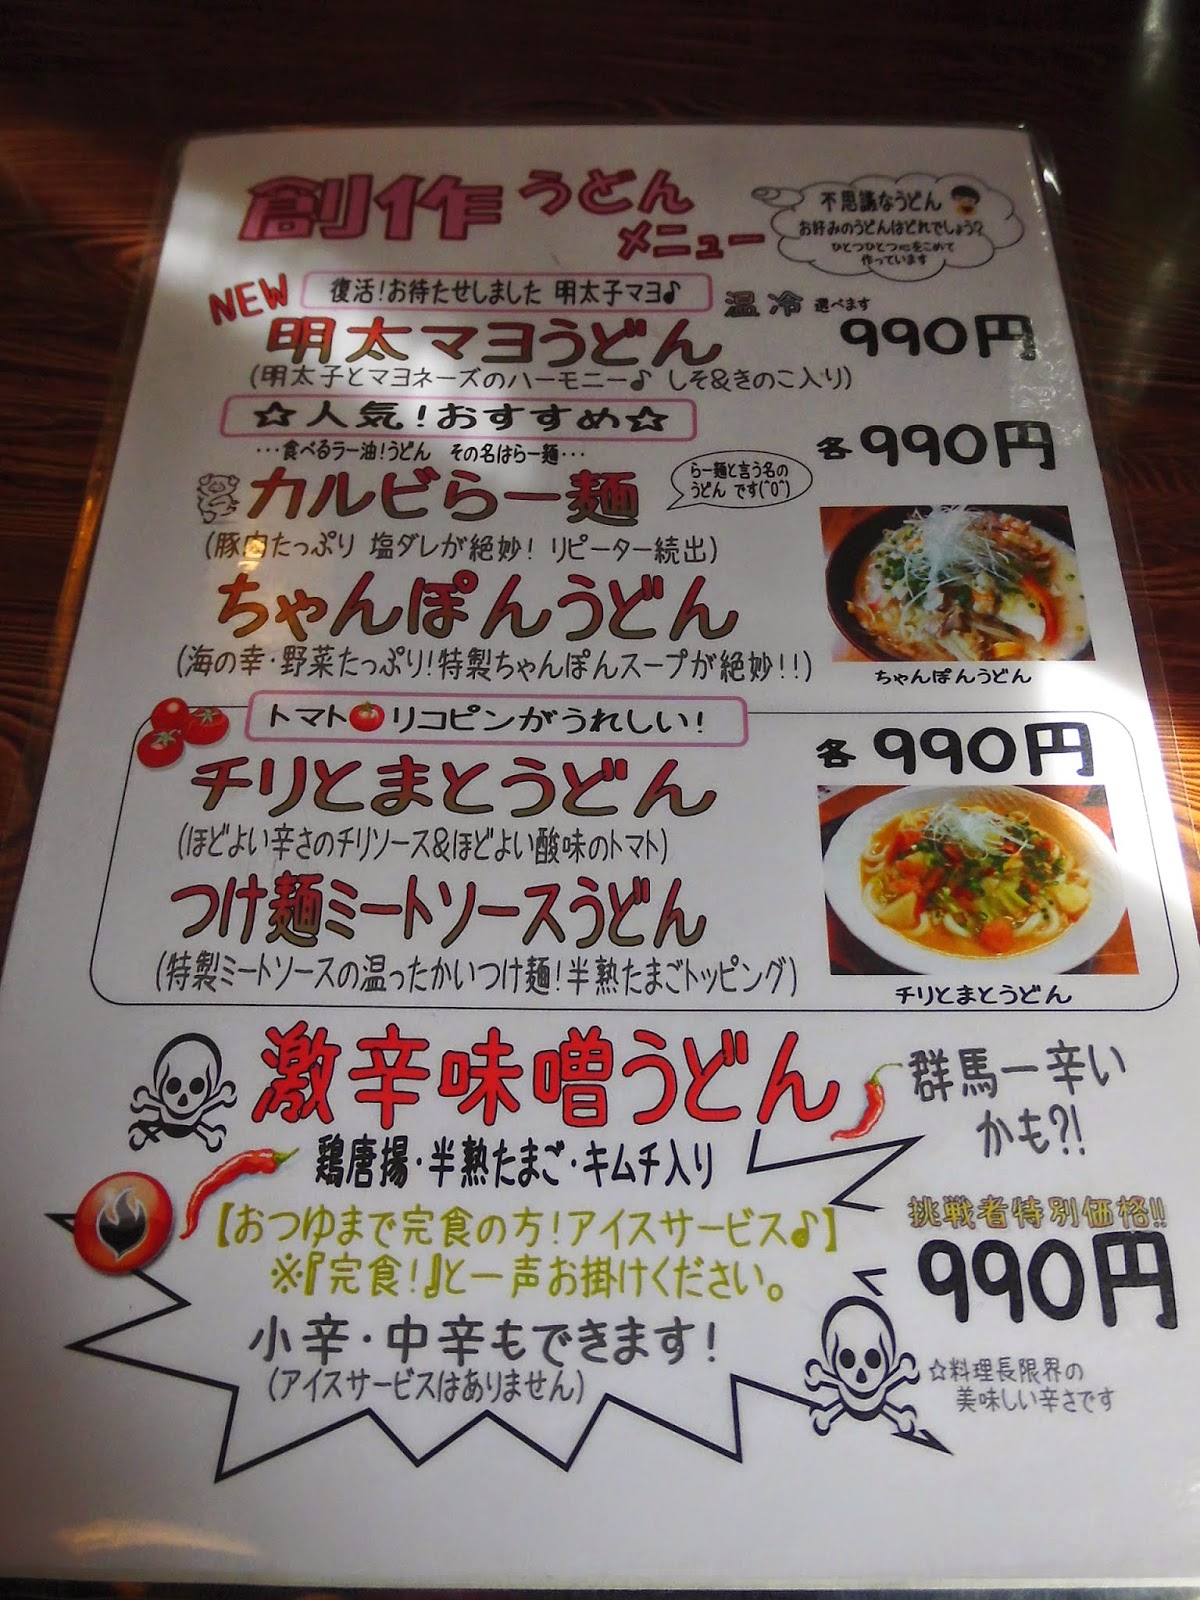 創作うどん
メニュー
不思議なうどん
お好みのうどんはどれでしょう?
ひとつひとつ心をこめて
作っています
NEW
復活!お待たせしました 明太子マヨ♪
温 冷 選べます
明太マヨうどん
990円
(明太子とマヨネーズのハーモニー♪ しそ&きのこ入り)
☆人気!おすすめ☆
各990円
…食べるラー油!うどん その名はらー麺…
カルビらー麺
らー麺と言う名の
うどん です(^0^)
(豚肉たっぷり 塩ダレが絶妙! リピーター続出)
ちゃんぽんうどん
(海の幸・野菜たっぷり!特製ちゃんぽんスープが絶妙!!)
ちゃんぽんうどん
トマト リコピンがうれしい!
各990円
チリとまとうどん
(ほどよい辛さのチリソース&ほどよい酸味のトマト)
つけ麺ミートソースうどん
(特製ミートソースの温ったかいつけ麺!半熟たまごトッピング)
チリとまとうどん
激辛味噌うどん
群馬一辛い
かも?!
鶏唐揚・半熟たまご・キムチ入り
【おつゆまで完食の方!アイスサービス♪】
※『完食!』と一声お掛けください。
挑戦者特別価格!!
990円
小辛・中辛もできます!
(アイスサービスはありません)
☆料理長限界の
美味しい辛さです